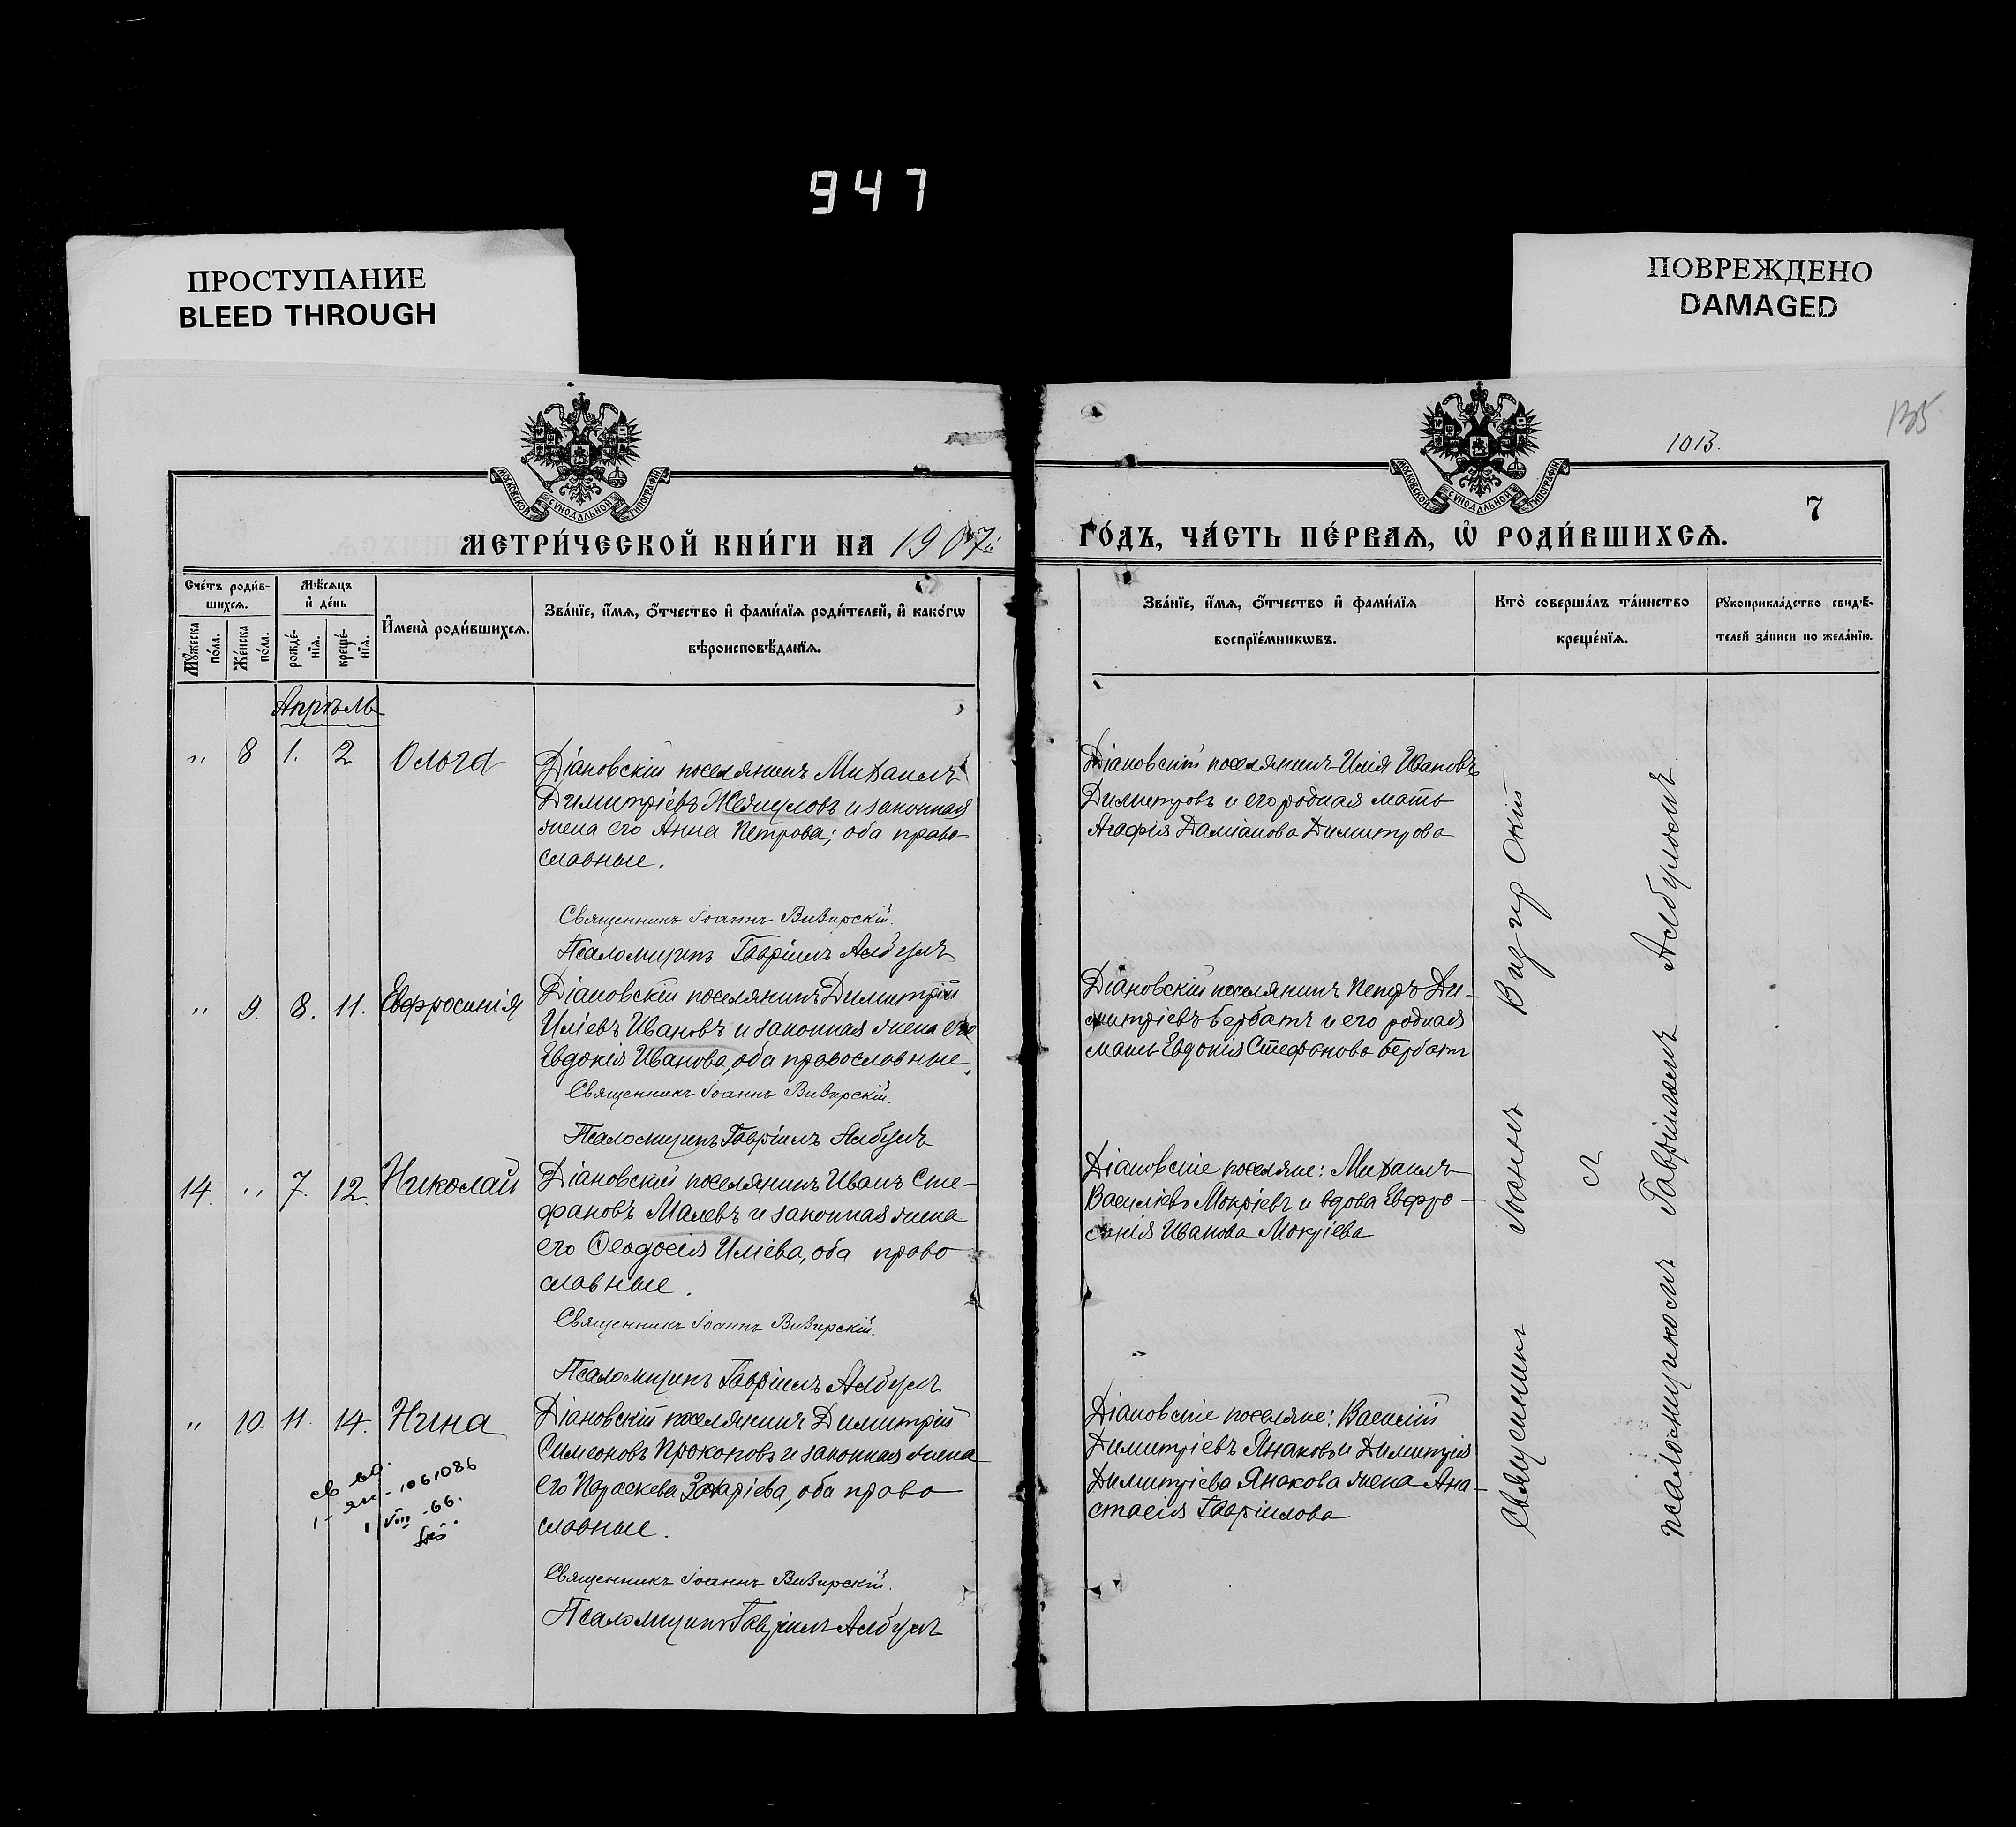 947
ПРОСТУПАНИЕ
BLEED THROUGH
ПОВРЕЖДЕНО
DAMAGED
1013.
7
МОСКОВСКОЙ СѴНОДАЛЬНОЙ ТИПОГРАФІИ
МОСКОВСКОЙ СѴНОДАЛЬНОЙ ТИПОГРАФІИ
МЕТРИ́ЧЕСКОЙ КНИ́ГИ НА 1907й
ГО́ДЪ, ЧА́СТЬ ПЕ́РВАѦ, Ѽ РОДИ́ВШИХСѦ.
Сче́тъ роди́в-
шихсѧ.
Мѣ́сѧцъ
и҆ де́нь
Мꙋ́жеска
по́ла.
Же́нска
по́ла.
рожде́-
нїѧ.
креще́-
нїѧ.
И҆мена̀ роди́вшихсѧ.
Зва́нїе, и҆́мѧ, ѻ҆́тчество и҆ фами́лїѧ роди́телей, и҆ како́гѡ
вѣроисповѣ́данїѧ.
Зва́нїе, и҆́мѧ, ѻ҆́тчество и҆ фами́лїѧ
воспрїе́мникѡвъ.
Кто̀ соверша́лъ та́инство
креще́нїѧ.
Рꙋкоприкла́дство свидѣ́-
телей за́писи по жела́нїю.
Апрѣль
" 8 1. 2 Ольга
Діановскій поселянинъ Михаилъ
Димитріевъ Желяуловъ и законная
жена его Анна Петрова; оба право-
славные.
Священникъ Іоаннъ Визирскій.
Псаломщикъ Гавріилъ Албулъ
Діановскій поселянинъ Илія Ивановъ
Димитровъ и его родная мать
Агафія Даміанова Димитрова
" 9. 8. 11. Евфросинія
Діановскій поселянинъ Димитрій
Иліевъ Ивановъ и законная жена его
Евдокія Иванова, оба православные.
Священникъ Іоаннъ Визирскій.
Псаломщикъ Гавріилъ Албулъ
Діановскій поселянинъ Петръ Ди-
митріевъ Бербатъ и его родная
мать Евдокія Стефанова Бербатъ
14. " 7. 12. Николай
Діановскій поселянинъ Иванъ Сте-
фановъ Малевъ и законная жена
его Ѳеодосія Иліева, оба право
славные.
Священникъ Іоаннъ Визирскій.
Псаломщикъ Гавріилъ Албулъ
Діановскіе поселяне: Михаилъ
Василіевъ Мокріевъ и вдова Евфро-
синія Иванова Мокріева
" 10. 11. 14. Нина
Діановскій поселянинъ Димитрій
Симеоновъ Прокоповъ и законная жена
его Параскева Захаріева, оба право
славные.
Священникъ Іоаннъ Визирскій.
Псаломщикъ Гавріилъ Албулъ
Діановскіе поселяне: Василій
Димитріевъ Янаковъ и Димитрія
Димитріева Янакова жена Ана-
стасія Гавріилова
1061086
Священникъ Іоаннъ Визирскій
съ
псаломщикомъ Гавріиломъ Албуломъ